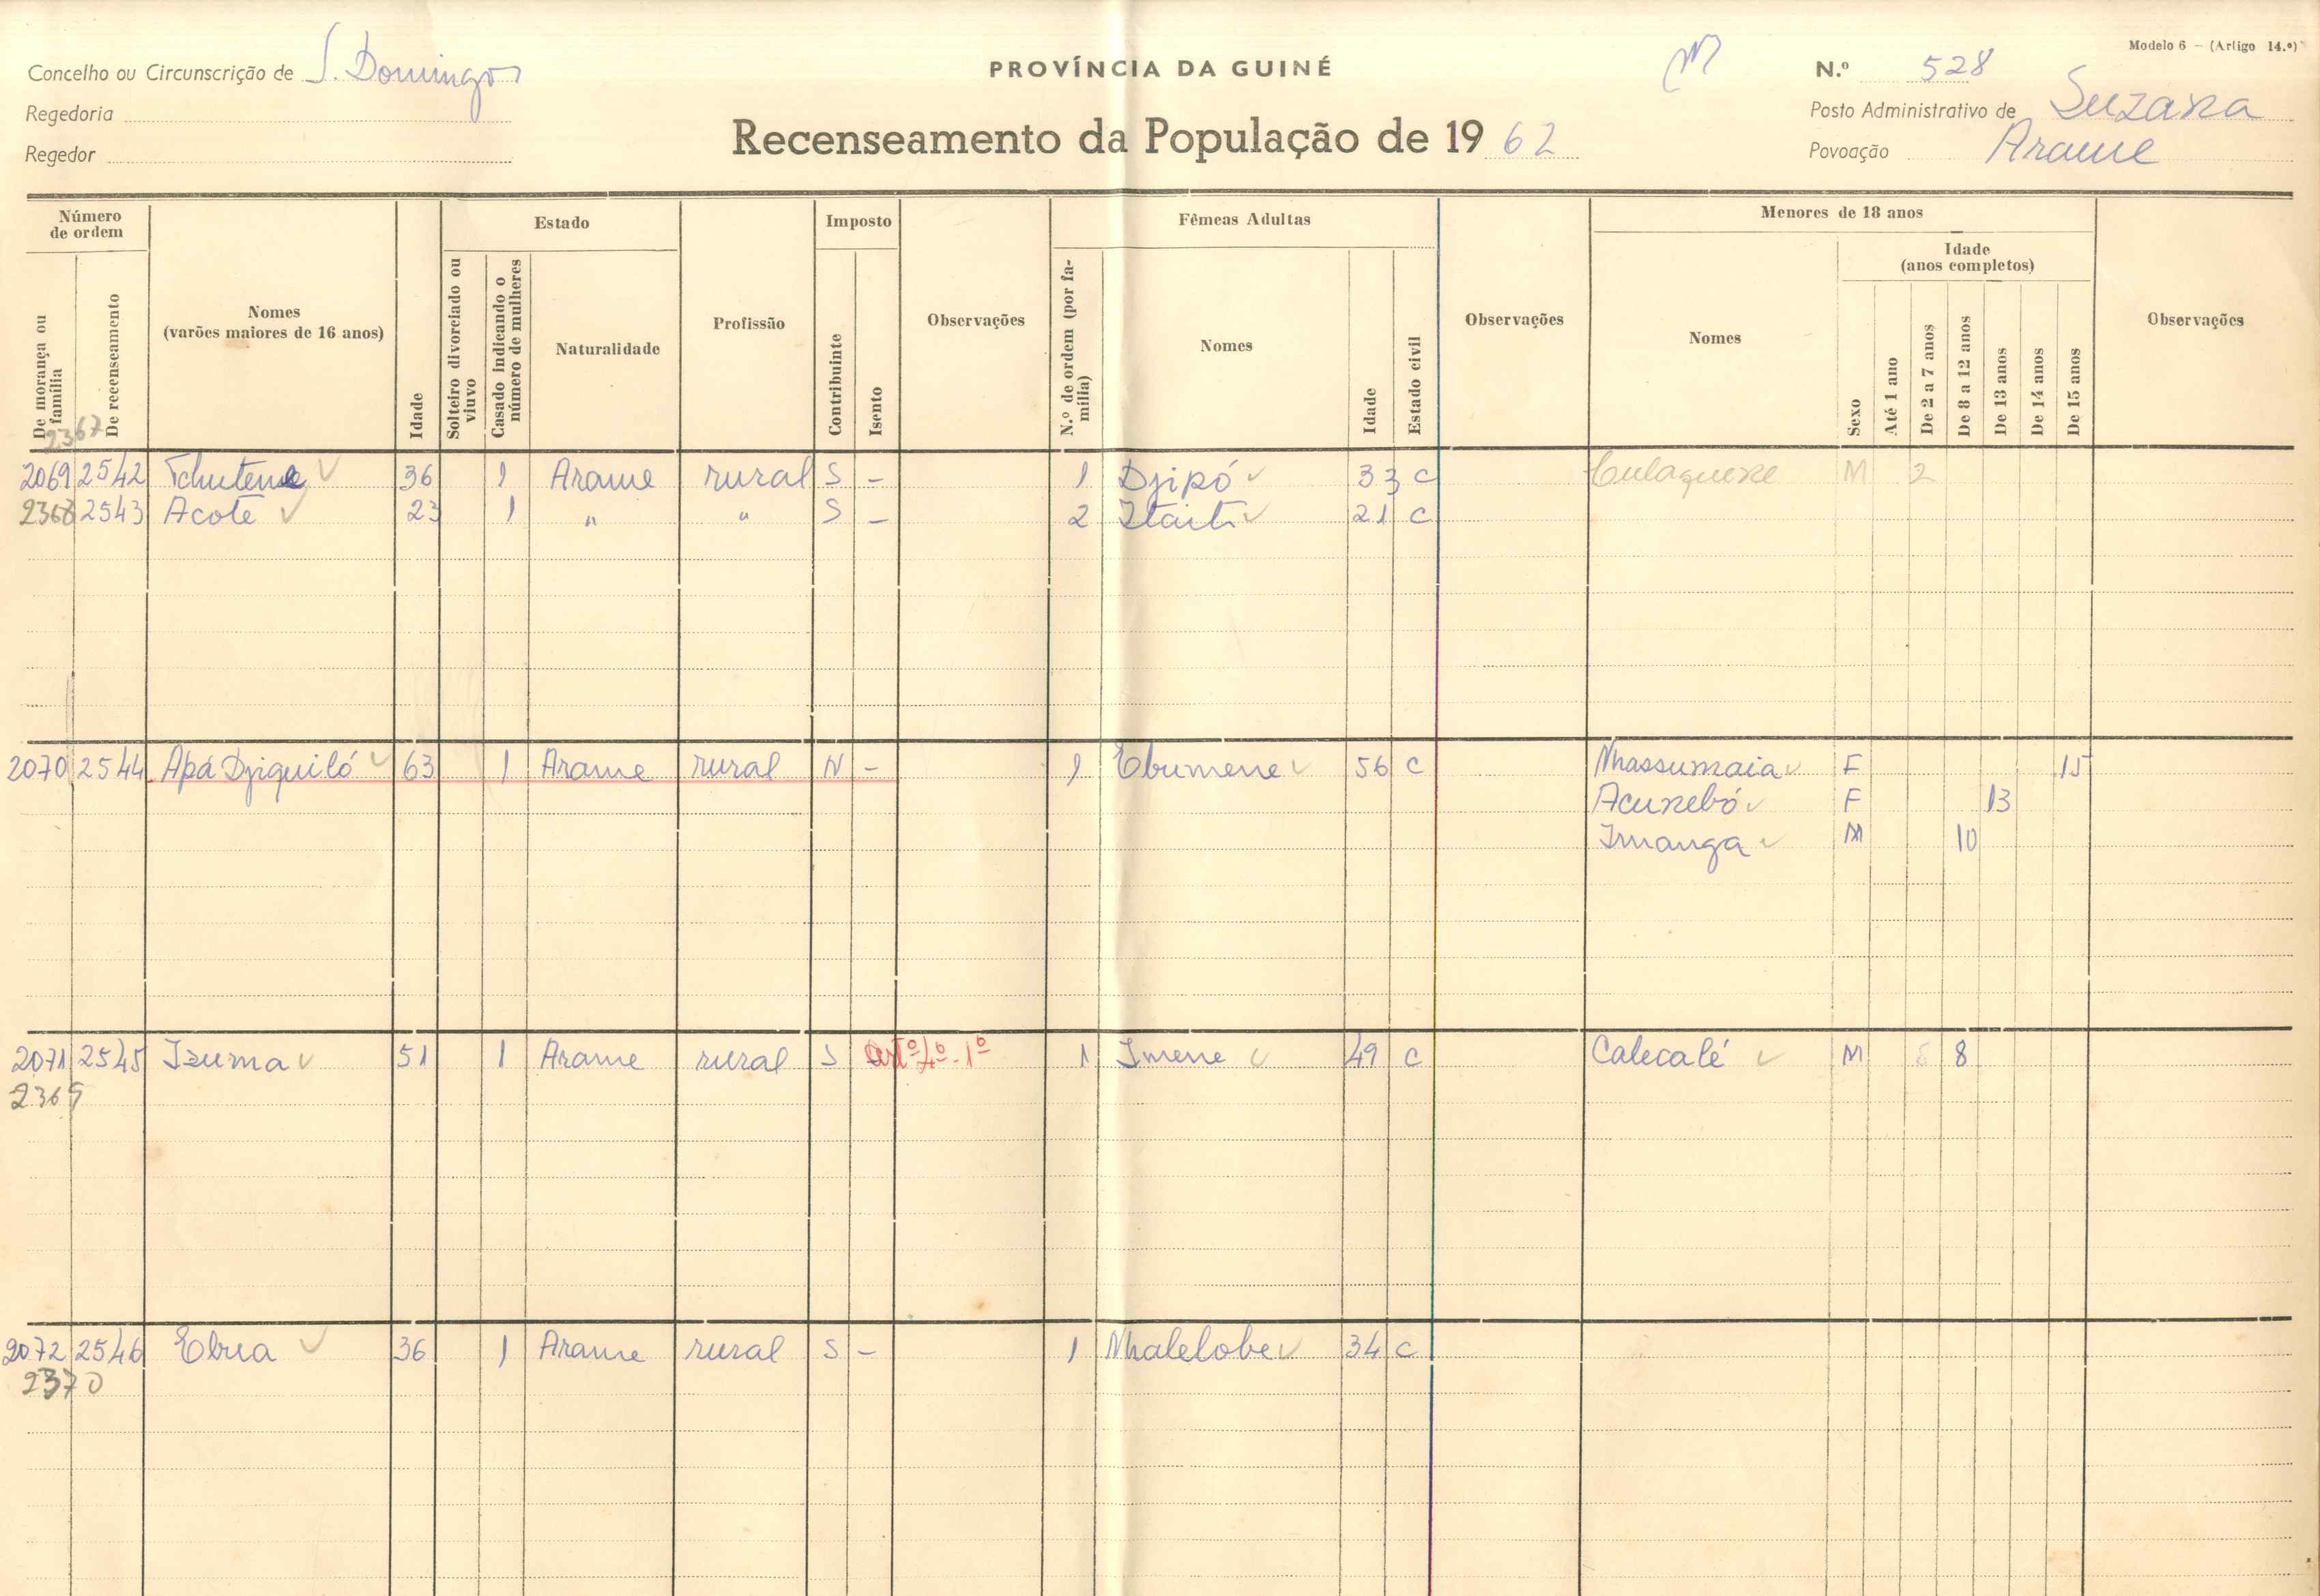 Modelo 6 — (Artigo 14.º)
Concelho ou Circunscrição de S. Domingos
PROVÍNCIA DA GUINÉ
N.º 528
Regedoria
Posto Administrativo de Suzana
Recenseamento da População de 1962
Regedor
Povoação Arame
Número de ordem
De morança ou família
De recenseamento
Nomes
(varões maiores de 16 anos)
Idade
Estado
Solteiro divorciado ou viuvo
Casado indicando o número de mulheres
Naturalidade
Profissão
Imposto
Contribuinte
Isento
Observações
Fêmeas Adultas
N.º de ordem (por família)
Nomes
Idade
Estado civil
Observações
Menores de 18 anos
Nomes
Sexo
Idade
(anos completos)
Até 1 ano
De 2 a 7 anos
De 8 a 12 anos
De 13 anos
De 14 anos
De 15 anos
Observações
2367
2069 2542 Tchutene 36 1 Arame rural S - 1 Djipó 33 C Culaquene M 2
2368 2543 Acote 23 1 " " S - 2 Itaiti 21 C
2070 2544 Apá Djiquiló 63 1 Arame rural N - 1 Ebumene 56 C Nhassumaia F 15
Acunebó F 13
Imanga M 10
2071 2545 Izuma 51 1 Arame rural S artº 4º-1º 1 Imene 49 C Calecalé M 8
2369
2072 2546 Ebua 36 1 Arame rural S - 1 Nhalelobe 34 C
2370